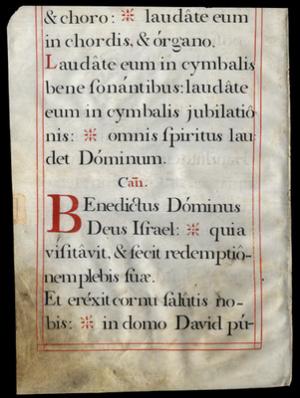 & choro: ⁜ laudâte eum
in chordis, & órgano.
Laudâte eum in cymbalis
bene ſonántibus: laudâte
eum in cymbalis jubilatiô
nis: ⁜ omnis ſpiritus lau
det Dóminum.
Cañ.
Benedíctus Dóminus
Deus Iſrael: ⁜ quia
viſitâvit, & fècit redemptiô-
nem plebis ſuæ.
Et eréxit cornu ſalûtis no-
bis: ⁜ in domo David pú-